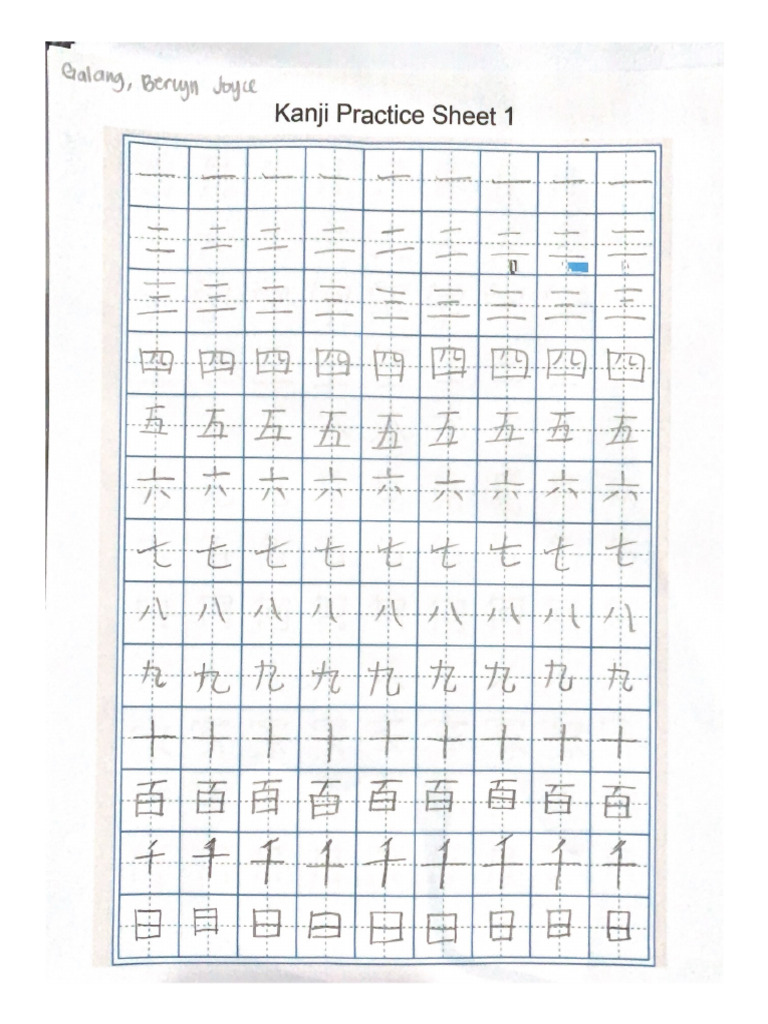 Galang, Beruyn Joyce
Kanji Practice Sheet 1
一 一 一 一 一 一 一 一 一
二 二 二 二 二 二 二 二 二
三 三 三 三 三 三 三 三 三
四 四 四 四 四 四 四 四 四
五 五 五 五 五 五 五 五 五
六 六 六 六 六 六 六 六 六
七 七 七 七 七 七 七 七 七
八 八 八 八 八 八 八 八 八
九 九 九 九 九 九 九 九 九
十 十 十 十 十 十 十 十 十
百 百 百 百 百 百 百 百 百
千 千 千 千 千 千 千 千 千
日 日 日 日 日 日 日 日 日